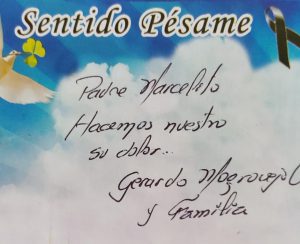 Sentido Pésame
Padre Marcelito
Hacemos nuestro
su dolor...
Gerardo Mogrovejo
y Familia